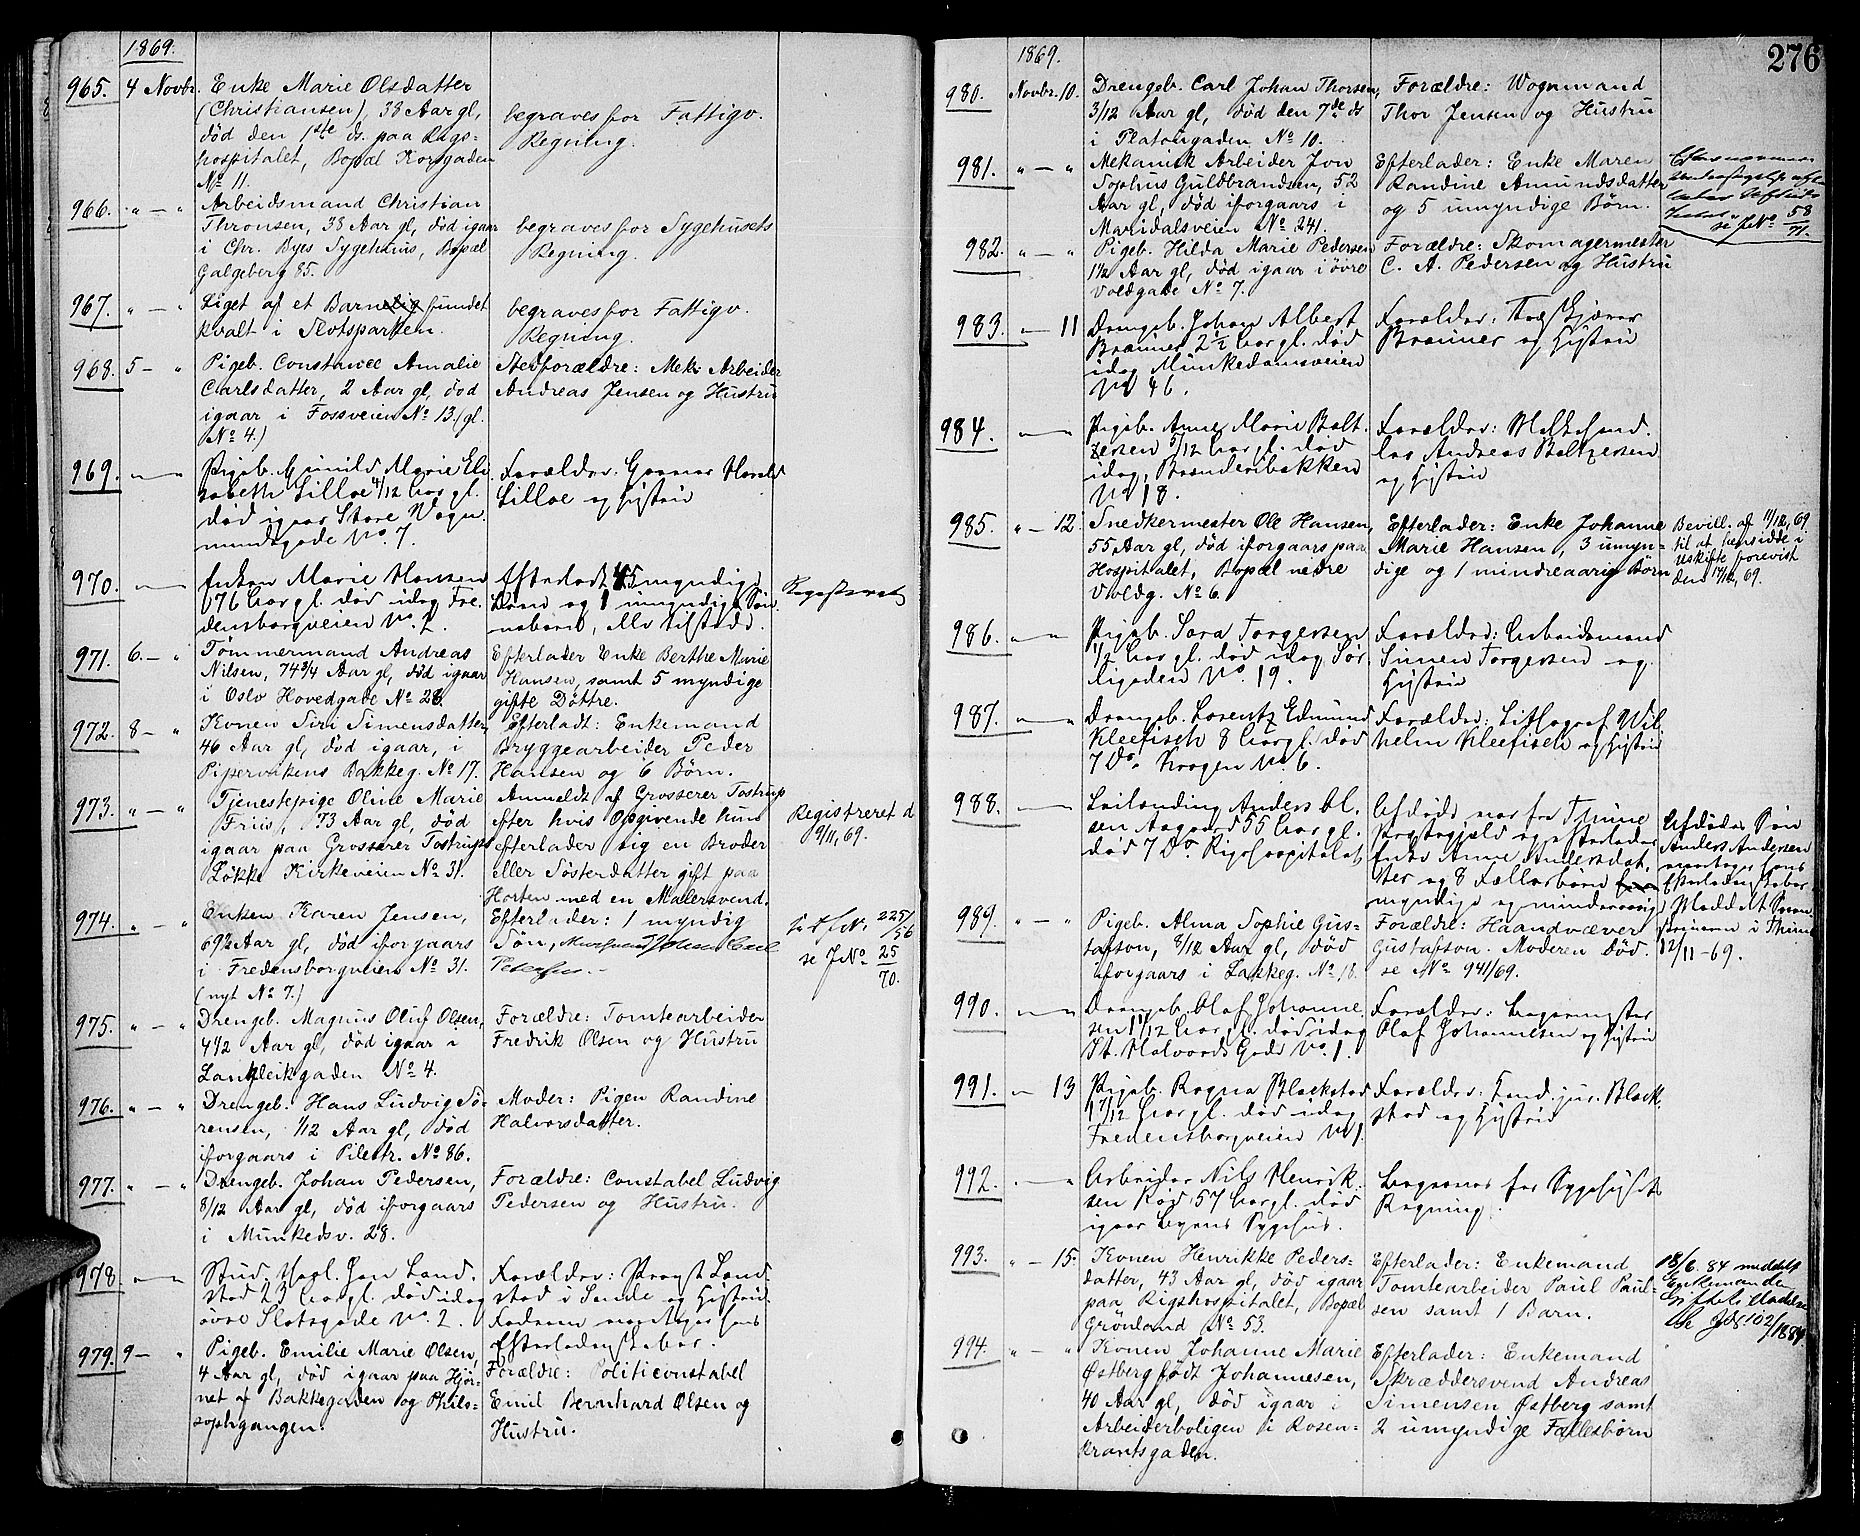 1869.
965. 4 Novbr. Enke Marie Olsdatter
(Christiansen), 38 Aar gl,
død den 1ste ds. paa Rigs-
hospitalet, Bopæl Korsgaden
No 11.
begraves for Fattigv.
Regning.
966. " — " Arbeidsmand Christian
Thronsen, 38 Aar gl, død igaar
i Chr. Byes Sygehuus, Bopæl
Galgeberg 85.
begraves for Sygehusets
Regning.
967. " — " Liget af et Barnelig fundet
kvalt i Slotsparken.
begraves for Fattigv.
Regning.
968. 5 — " Pigeb. Constance Amalie
Carlsdatter, 2 Aar gl, død
igaar i Fossveien No 13 (gl.
No 4.)
Stedforældre: Mek. Arbeider
Andreas Jensen og Hustru
969. " — " Pigeb. Gunild Marie Eli-
sabeth Lilloe 4/12 Aar gl.
død igaar Store Vogn-
mandsgade No. 7.
Forældre: Gunnar Harald
Lilloe og Hustru
970. " — " Enken Marie Hansen
76 Aar gl. død idag Fre-
densborgveien No. 2.
Efterladt 5 myndige
Børn og 1 umyndigt Søn-
nebarn, alle tilstede.
Registreret
971. 6. — " Tømmermand Andreas
Nilsen, 74 3/4 Aar gl, død igaar
i Oslo Hovedgade No 28.
Efterlader Enke Berthe Marie
Hansen, samt 5 myndige
gifte Døttre.
972. 8 — " Konen Siri Simensdatter
46 Aar gl, død igaar, i
Pipervikens Bakkeg. No 17.
Efterladt: Enkemand
Bryggearbeider Peder
Hansen og 6 Børn.
973. " — " Tjenestepige Oline Marie
Friis, 73 Aar gl, død
igaar paa Grosserer Tostrups
Løkke Kirkeveien No 31.
Anmeldt af Grosserer Tostrup
efter hvis Opgivende hun
efterlader sig en Broder
eller Søsterdatter gift paa
Horten med en Malersvend.
Registreret d
9/11, 69.
974. " — " Enken Karen Jensen,
69 1/2 Aar gl, død iforgaars
i Fredensborgveien No 31.
(nyt No 7.)
Efterlader: 1 myndig
Søn, Johan Carl
Petersen. —
225/56
se JNo 25/70.
975. " — " Drengeb. Magnus Oluf Olsen,
4 1/2 Aar gl, død igaar i
Langleikgaden No 4.
Forældre: Tomtearbeider
Fredrik Olsen og Hustru
976. " — " Drengeb. Hans Ludvig Sø-
rensen, 1/12 Aar gl, død
iforgaars i Pilestr. No 86.
Moder: Pigen Randine
Halvorsdatter.
977. " — " Drengeb. Johan Pedersen,
8/12 Aar gl, død iforgaars
i Munkedsv. 28.
Forældre: Constabel Ludvig
Pedersen og Hustru.
978. " — " Stud. Jan Land-
stad 23 Aar gl. død idag
øvre Slotsgade No. 2.
Forældre: Provst Land-
stad i Sande og Hustru.
Faderen hans
Efterladenskaber.
979. 9 — " Pigeb. Emilie Marie Olsen,
4 Aar gl, død igaar paa Hjør-
net af Bakkegaden og Philo-
sophgangen.
Forældre: Politiconstabel
Emil Bernhard Olsen og
Hustru.
276
1869.
980. Novbr. 10. Drengeb. Carl Johan Thorsen,
3/12 Aar gl, død den 7de ds
i Platousgaden No 10.
Forældre: Vognmand
Thor Jensen og Hustru
981. " — " Mekanisk Arbeider Jon
Sophus Guldbrandsen, 52
Aar gl, død iforgaars i
Maridalsveien No 241.
Efterlader: Enke Maren
Randine Amundsdatter
og 5 umyndige Børn.
se JNo 58/71.
982. " — " Pigeb. Hilda Marie Pedersen
1 1/2 Aar gl, død igaar i øvre
Voldgade No 7.
Forældre: Skomagermester
C. A. Pedersen og Hustru
983. " — 11 Drengeb. Johan Albert
Brauner 2 1/2 Aar gl. død
idag Munkedamsveien
No 46.
Forældre:
Brauner og Hustru
984. " — " Pigeb. Anne Marie Balt-
zersen 5/12 Aar gl. død
idag, Brænderibakken
No 18.
Forældre: Melkehand-
ler Andreas Baltzersen
og Hustru
985. " — 12 Snedkermester Ole Hansen,
55 Aar gl, død iforgaars paa
Hospitalet, Bopæl nedre
Voldg. No 6.
Efterlader: Enke Johanne
Marie Hansen, 3 umyn-
dige og 1 mindreaarig Barn
Bevill. af 11/12, 69
til at hensidde i
uskifte forevist
den 17/12, 69.
986. " — " Pigeb. Sara Torgersen
1/2 Aar gl. død idag Sør-
ligaden No. 19.
Forældre: Arbeidsmand
Simen Torgersen og
Hustru
987. " — " Drengeb. Lorentz Edmund
Kleefisch 8 Aar gl. død
7 Ds. Krogen No. 6.
Forældre: Lithograf Wil-
helm Kleefisch og Hustru
988. " — " Leilending Anders Ol-
sen Aagaard 55 Aar gl.
død 7 Ds. Rigshospitalet
Afdøde var fra Thime
Prestegjeld og efterlader
Enke Anne Andersdat-
ter og 8 Fællesbørn
myndige og mindreaarige
Afdødes Søn
Anders Andersen
modtager hans
Efterladenskaber
Meddelt
i Thime
12/11-69.
989. " — " Pigeb. Alma Sophie Gus-
tafson, 8/12 Aar gl, død
iforgaars i Lakkeg. No 18.
Forældre: Haandværker
Gustafson. Moderen død.
se No 941/69.
990. " — " Drengeb. Olaf Johanne-
sen 1 11/12 Aar gl. død idag
St. Halvards Gade No. 1.
Forældre: Bagermester
Olaf Johannesen og Hustru
991. " — 13 Pigeb. Ragna Blackstad
1 7/12 Aar gl. død idag
Fredensborgveien No 1.
Forældre: Cand. jur. Black-
stad og Hustru
992. " — " Arbeider Nils Henrik-
sen Rød 57 Aar gl. død
igaar Byens Sygehus.
Begraves for Sygehusets
Regning.
993. " — 15. Konen Henrikke Peders-
datter, 43 Aar gl, død igaar
paa Rigshospitalet, Bopæl
Grønland No 53.
Efterlader: Enkemand
Tomtearbeider Paul Paul-
sen samt 1 Barn.
18/6. 84 meddelt
Enkemanden
102/1884
994. " — " Konen Johanne Marie
Østberg født Johannesen,
40 Aar gl, død igaar i
Arbeiderboligen i Rosen-
krantsgaden.
Efterlader: Enkemand
Skræddersvend Andreas
Simensen Østberg samt
2 umyndige Fællesbørn